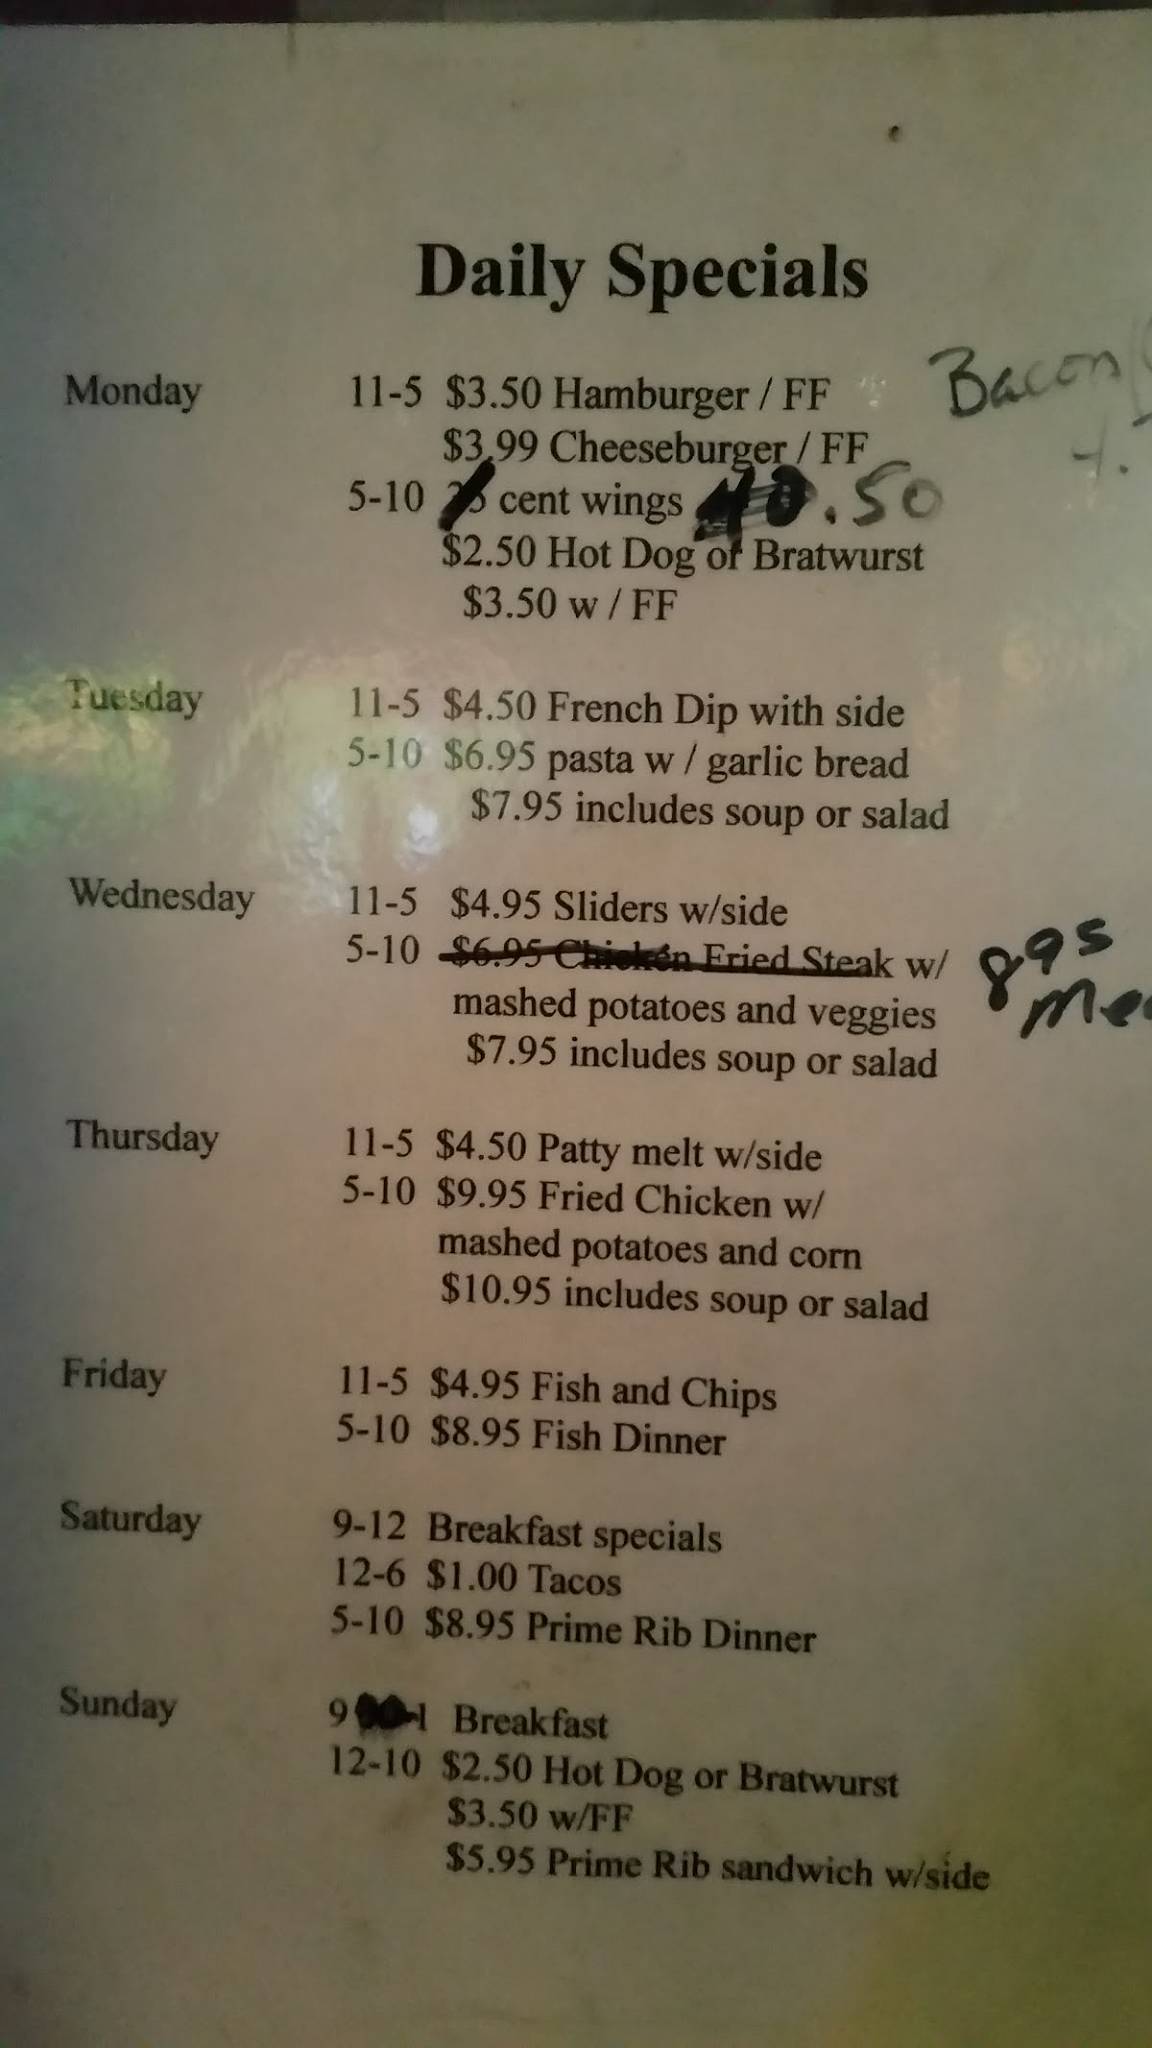 Daily Specials
Monday 11-5 $3.50 Hamburger / FF Bacon
$3.99 Cheeseburger / FF
5-10 cent wings .50
$2.50 Hot Dog or Bratwurst
$3.50 w / FF
Tuesday 11-5 $4.50 French Dip with side
5-10 $6.95 pasta w / garlic bread
$7.95 includes soup or salad
Wednesday 11-5 $4.95 Sliders w/side
5-10 $6.95 Chicken Fried Steak w/ 895
mashed potatoes and veggies
$7.95 includes soup or salad
Thursday 11-5 $4.50 Patty melt w/side
5-10 $9.95 Fried Chicken w/
mashed potatoes and corn
$10.95 includes soup or salad
Friday 11-5 $4.95 Fish and Chips
5-10 $8.95 Fish Dinner
Saturday 9-12 Breakfast specials
12-6 $1.00 Tacos
5-10 $8.95 Prime Rib Dinner
Sunday 9 -1 Breakfast
12-10 $2.50 Hot Dog or Bratwurst
$3.50 w/FF
$5.95 Prime Rib sandwich w/side